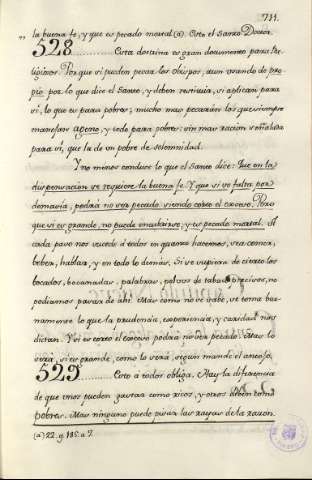 711.
" la buena fe, y que es pecado mortal (a). Esto el Santo Doctor.
528 ......... Esta doctrina es gran documento para Re-
ligiosos. Porque si pueden pecar los obispos, aun usando de pro-
pio por lo que dice el Santo, y deben restituir, si aplican para
sí, lo que es para pobres; mucho mas pecarán los que siempre
manejan ageno, y todo para pobres: sin mas racion señalada
para sí, que la de un pobre de solemnidad.
Y no menos conduce lo que el Santo dice: Que en la
dispensacion se requiere la buena fe. Y que si se falta por
demasía, podrá no ser pecado siendo corto el exceso. Pero
que si es grande, no puede excusarse, y es pecado mortal. A
cada paso nos sucede á todos en quanto hacemos, sea comer,
beber, hablar, y en todo lo demás. Si se supiera de cierto los
bocados, bocanadas, palabras, polvos de tabaco precisos, no
podíamos pasar de ahí. Mas como no se sabe, se toma bue-
namente lo que la prudencia, experiencia, y caridad nos
dictan. Y si es corto el exceso podrá no ser pecado. Mas lo
será, si es grande, como lo será, segun mande el exceso.
529 ......... Esto a todos obliga. Hay la diferencia
de que unos pueden gastar como ricos, y otros deben como
pobres. Mas ninguno puede pisar las rayas de la razon.
(a) 22. q. 185. a 7.